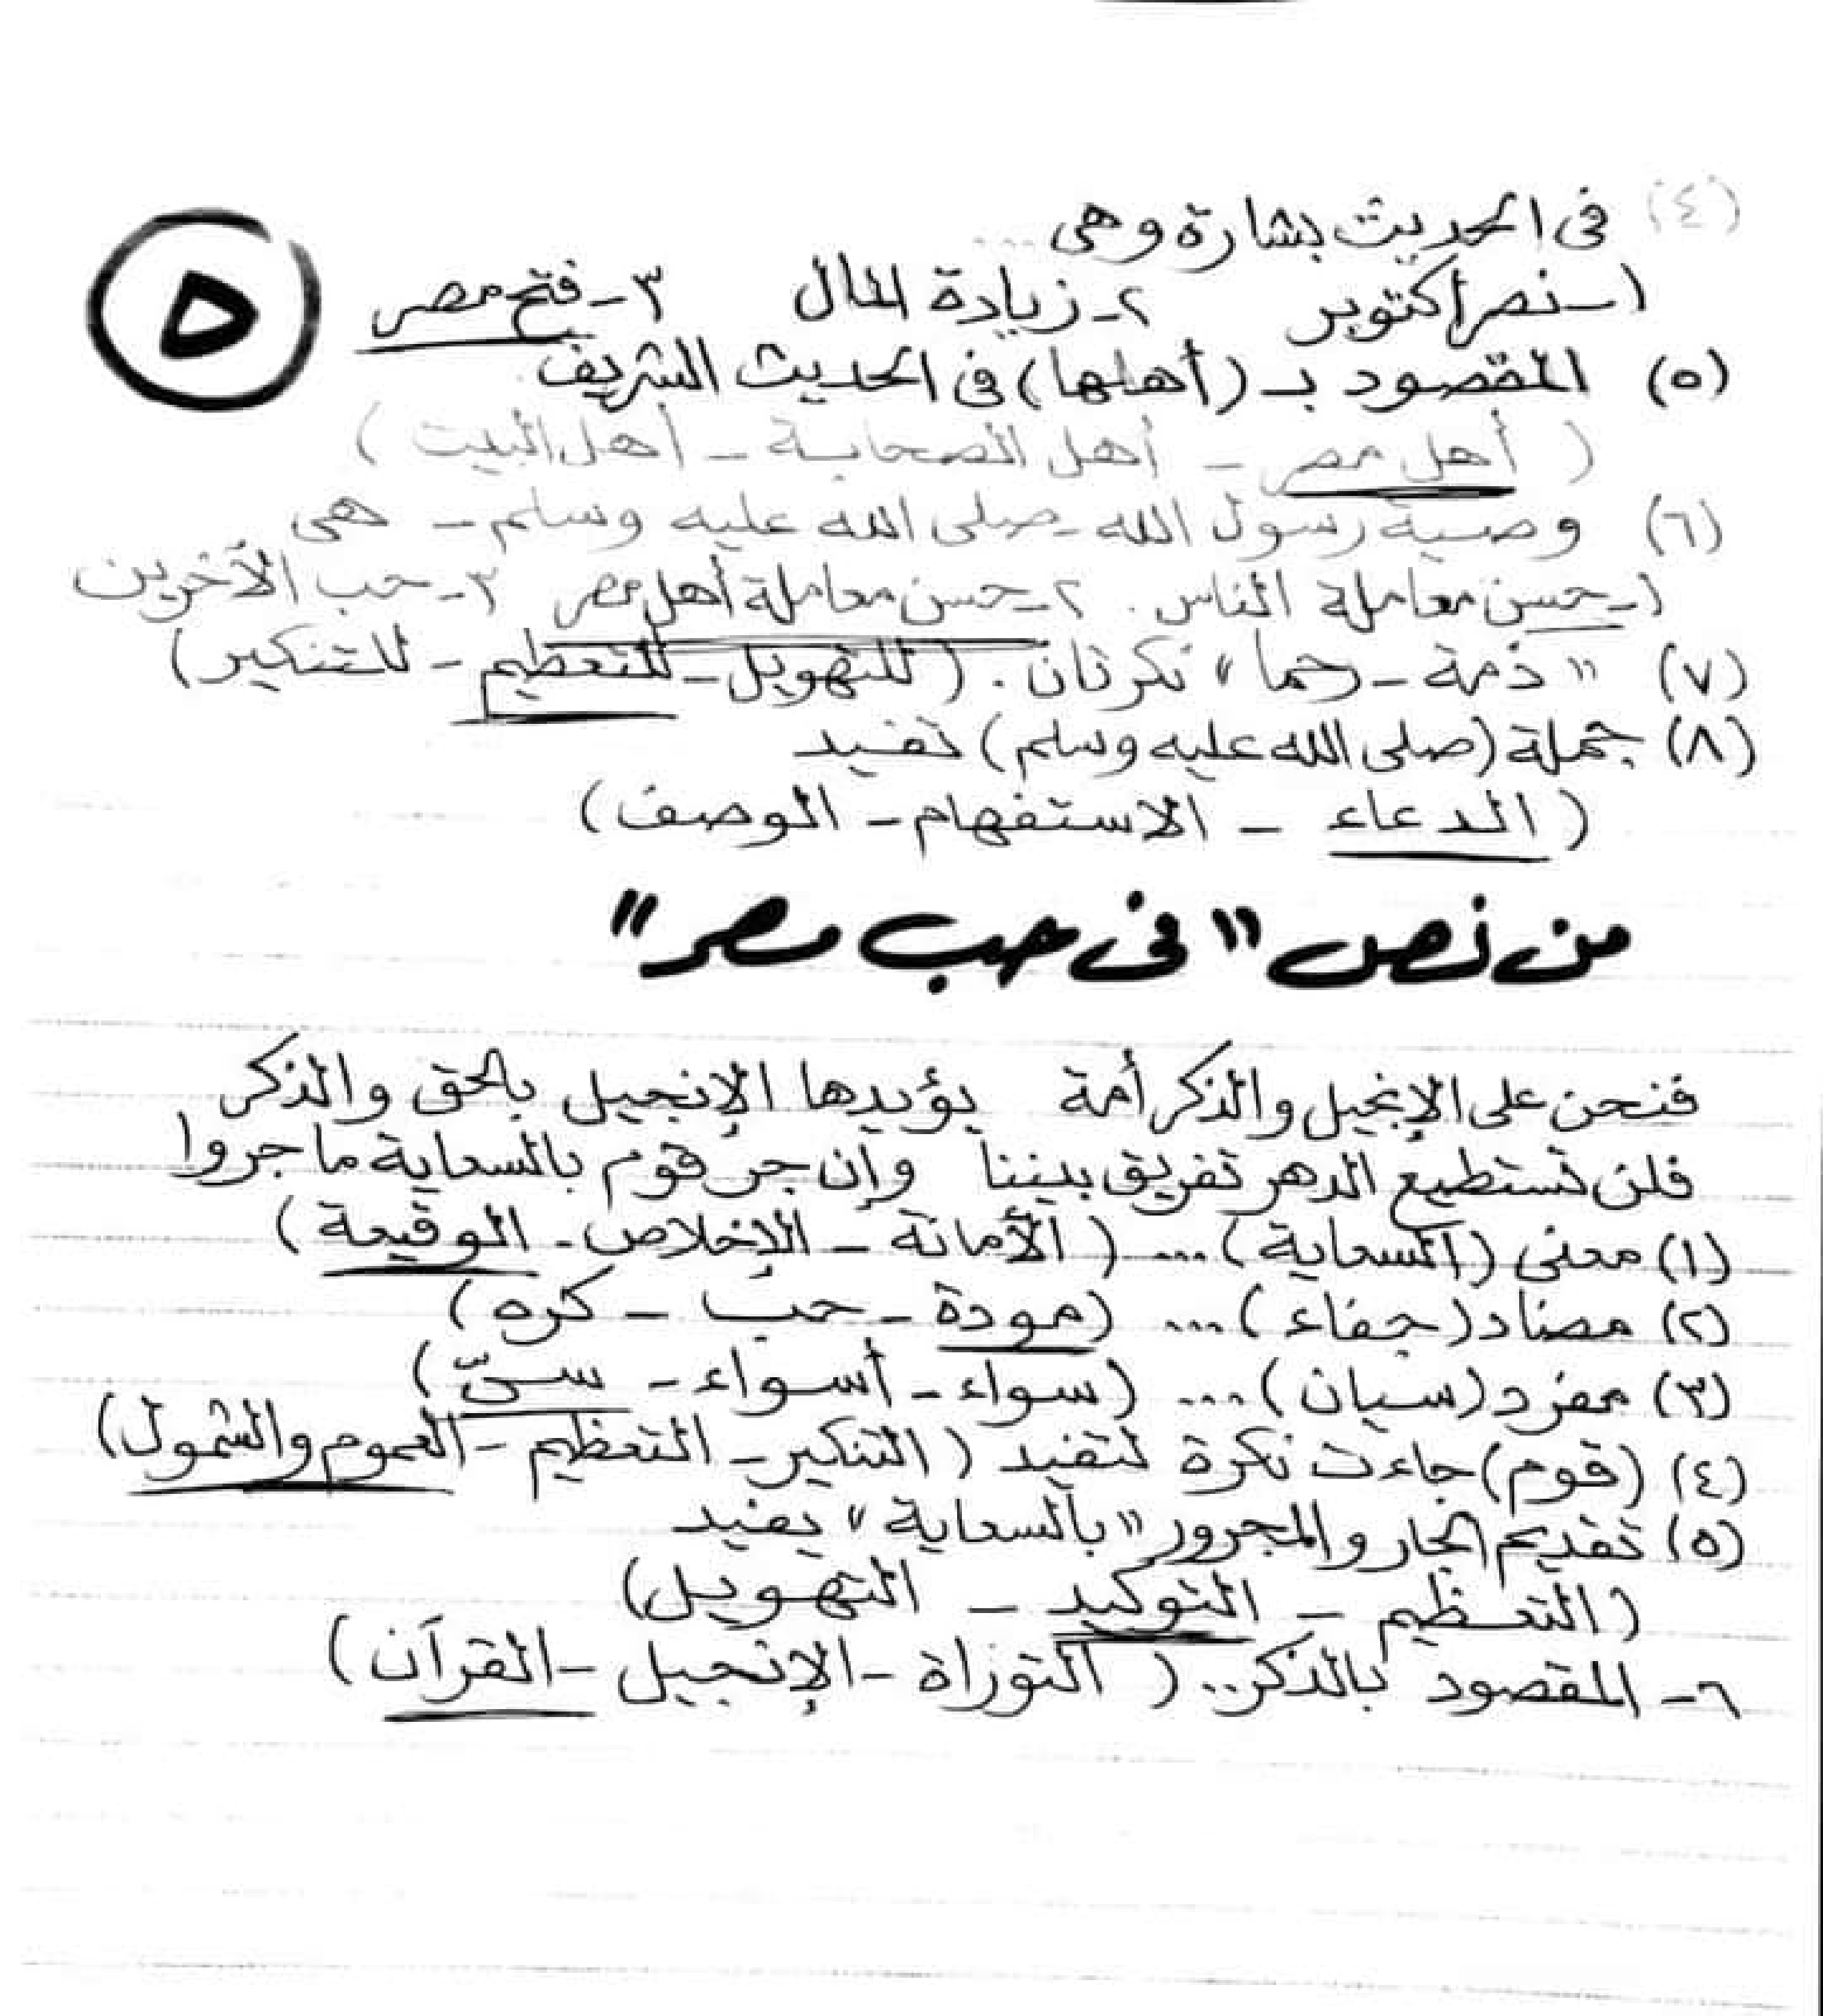 (٤) فى الحديث بشارة وهى ...
١- نصر أكتوبر ٢- زيادة المال ٣- فتح مصر
٥
(٥) المقصود بـ (أهلها) فى الحديث الشريف.
( أهل مصر - أهل الصحابة - أهل البيت )
(٦) وصية رسول الله - صلى الله عليه وسلم - هى
١- حسن معاملة الناس. ٢- حسن معاملة أهل مصر ٣- حب الآخرين
(٧) "ذمة - رحما" نكرتان. (للتهويل - للتعظيم - للتنكير)
(٨) جملة (صلى الله عليه وسلم) تفيد
( الدعاء - الاستفهام - الوصف )
من نص "فى حب مصر"
فنحن على الإنجيل والذكر أمة يؤيدها الإنجيل بالحق والذكر
فلن تستطيع الدهر تفريق بيننا وإن جر قوم بالسعاية ما جروا
(١) معنى (السعاية) ... ( الأمانة - الإخلاص - الوقيعة )
(٢) مضاد (جفاء) ... (مودة - حب - كره )
(٣) مفرد (سيان) ... (سواء - أسواء - سىّ )
(٤) (قوم) جاءت نكرة لتفيد ( التنكير - التعظيم - العموم والشمول)
(٥) تقديم الجار والمجرور "بالسعاية" يفيد
(التعظيم - التوكيد - التهويل)
٦- المقصود بالذكر.. ( التوراة - الإنجيل - القرآن )